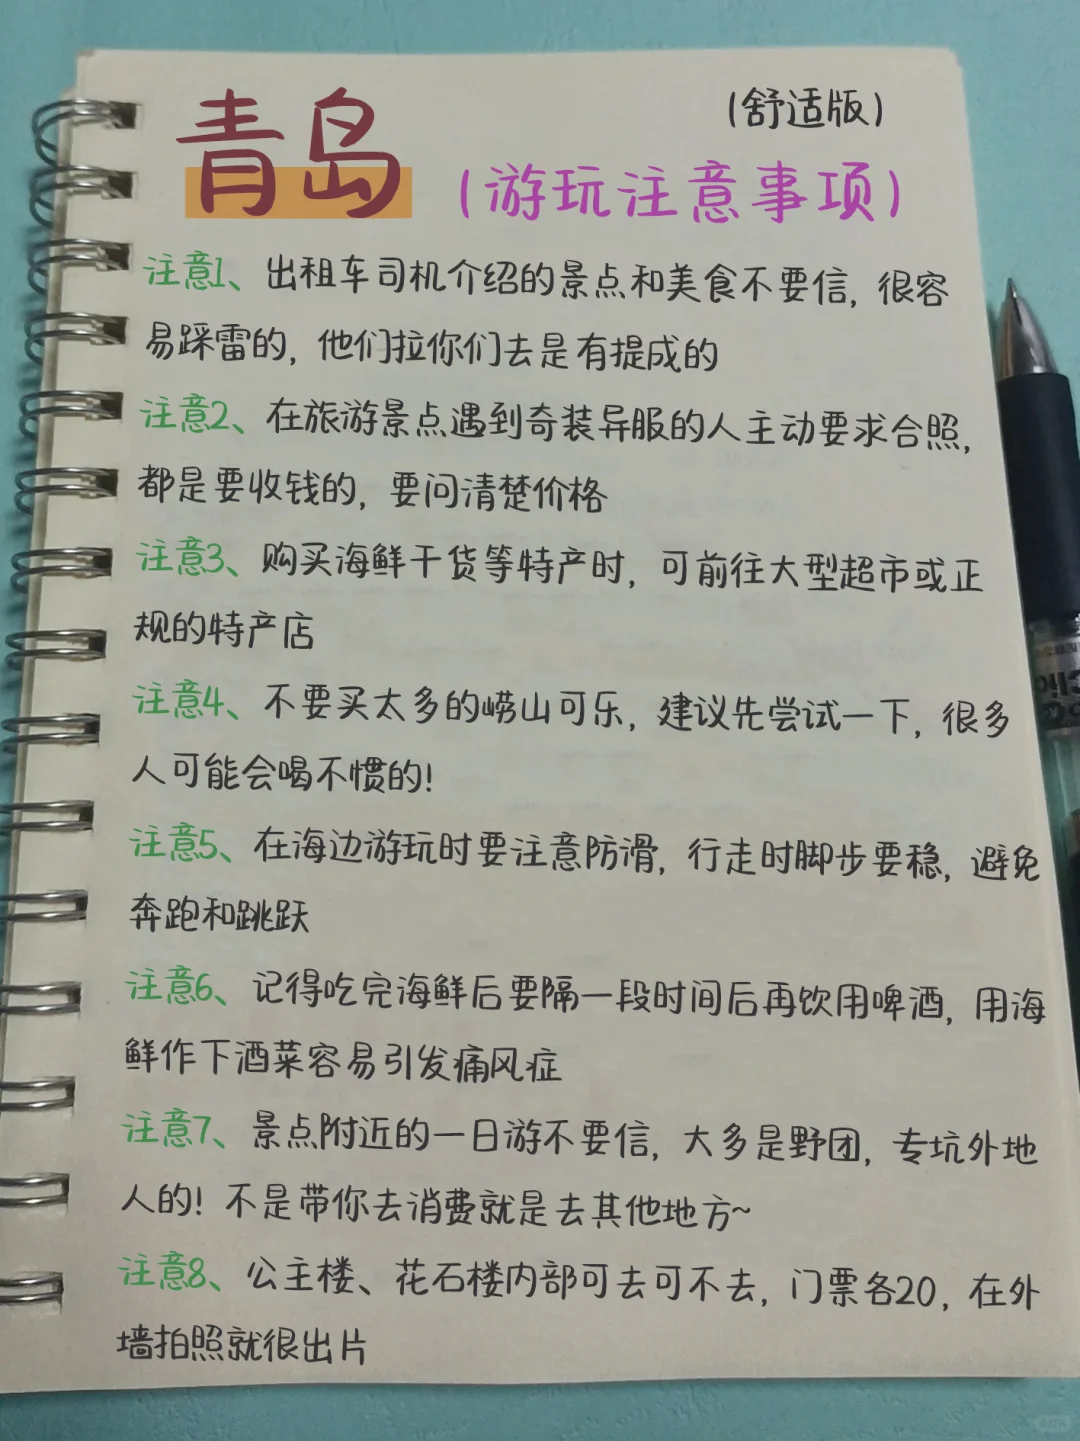 青岛
(舒适版)
(游玩注意事项)
注意1、出租车司机介绍的景点和美食不要信，很容
易踩雷的，他们拉你们去是有提成的
注意2、在旅游景点遇到奇装异服的人主动要求合照，
都是要收钱的，要问清楚价格
注意3、购买海鲜干货等特产时，可前往大型超市或正
规的特产店
注意4、不要买太多的崂山可乐，建议先尝试一下，很多
人可能会喝不惯的！
注意5、在海边游玩时要注意防滑，行走时脚步要稳，避免
奔跑和跳跃
注意6、记得吃完海鲜后要隔一段时间后再饮用啤酒，用海
鲜作下酒菜容易引发痛风症
注意7、景点附近的一日游不要信，大多是野团，专坑外地
人的！不是带你去消费就是去其他地方~
注意8、公主楼、花石楼内部可去可不去，门票各20，在外
墙拍照就很出片